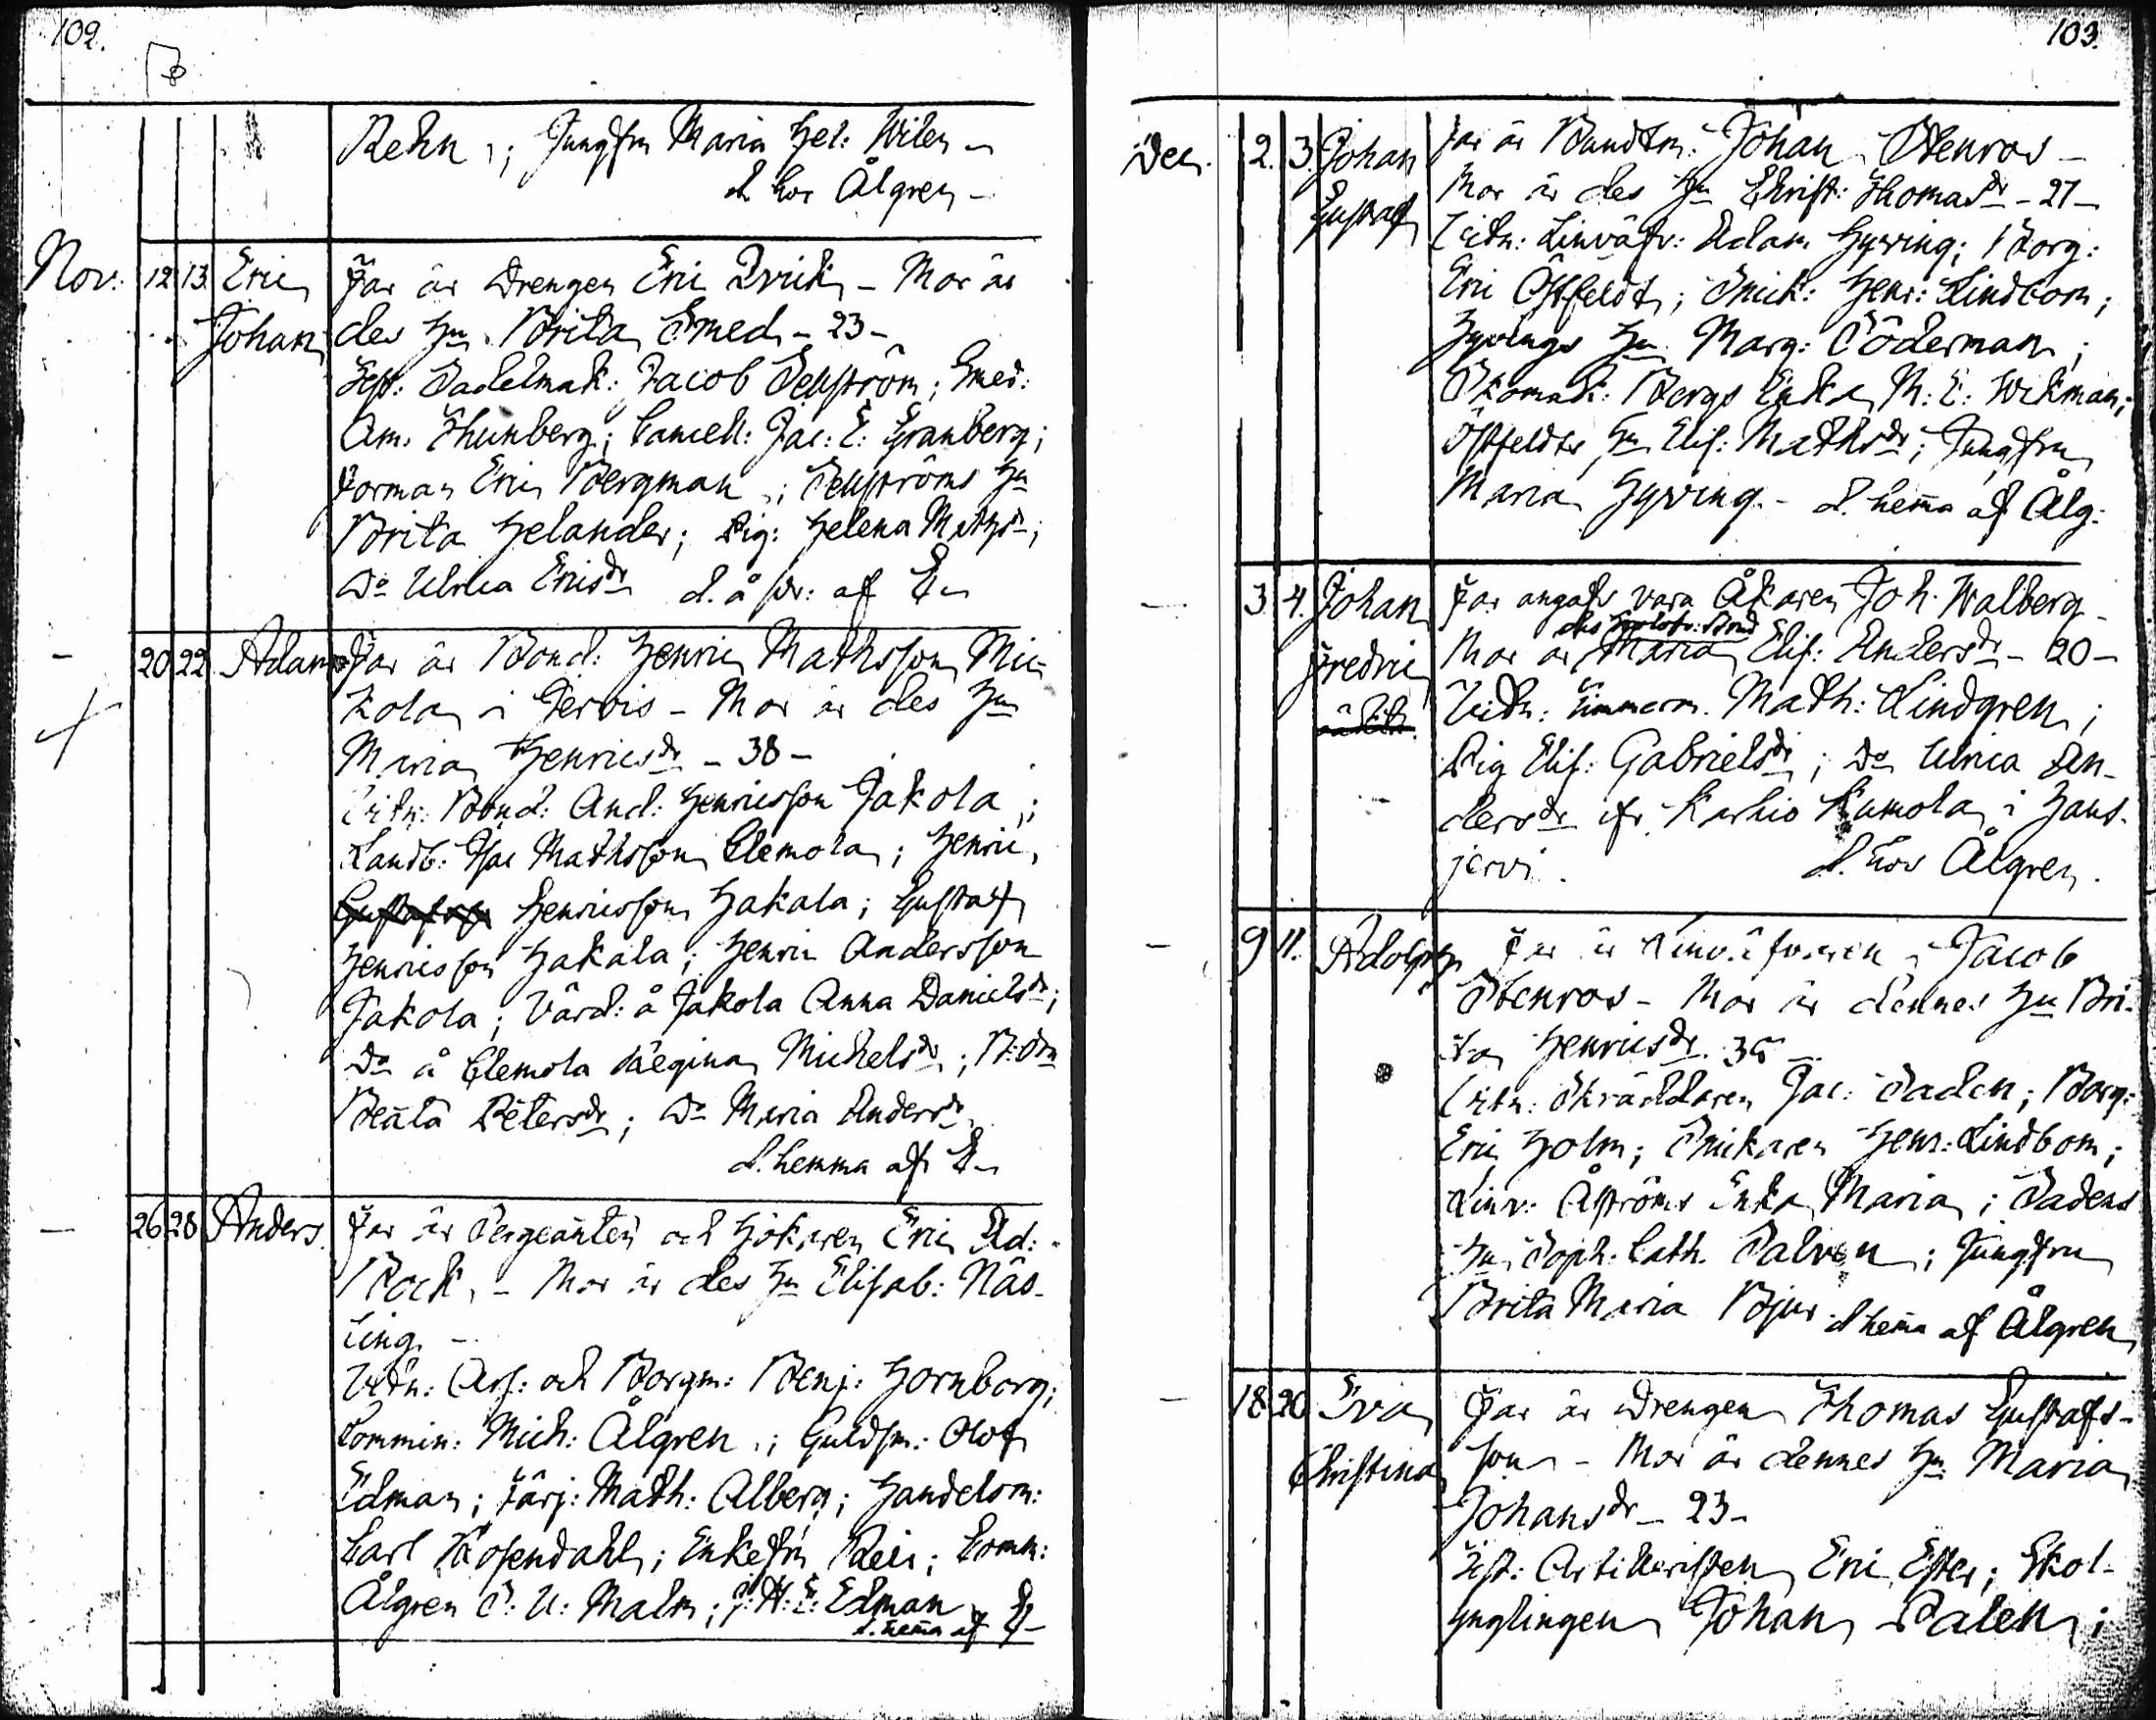 102.
Rehn ; Jungfru Maria Hel: Wilen
d. hos Ålgren
Nov. 12 13 Eric Johan
Far är Drengen Eric Qvick - Mor är
des Hu Brita Smed - 23 -
Test: Sadelmak: Jacob Sellström; Smed:
Am. Thunberg; Cancell: Jac: E: Granberg;
Forman Eric Bergman; Sellströms Hu
Brita Helander; Pig: Helena Mathsdr;
Do Ulrica Ericsdr d. å af
20 22 Adam
Far är Bond: Henric Mathsson Mic
kola i Jervis - Mor är des Hu
Maria Henricsdr - 38 -
Vitn: Bond: And: Henricsson Jakola;
Landb: Isac Mathsson Clemola; Henric
Henricsson Hakala; Gustaf
Henricsson Hakala; Henric Andersson
Jakola; Värd: å Jakola Anna Danielsdr;
Do å Clemola Regina Michelsdr; B:dr
Beata Petersdr; Do Maria Andersdr
d. hemma af
26 28 Anders.
Far är Sergeanten och Hökaren Eric Ad:
Bock - Mor är des Hu Elisab: Näs-
ling -
Vitn: Ass: och Borgm: Benj: Hornborg;
Commin: Mich: Ålgren; Guldsm: Olof
Edman; Färj: Math: Alberg; Handelsm:
Carl Rosendahl; Enkefru Rein; Comm:
Ålgren S: U: Malm; j: H: E: Edman
d. hema af
103.
Dec. 2. 3. Johan Gustaf
Far är Bundtm: Johan Stenros -
Mor är des Hu Christ: Thomasdr - 27 -
Vitn: Linväfv: Adam Hyving; Borg:
Eric Östfeldt; Snick: Henr: Lindbom;
Hyvings Hu Marg: Söderman;
Skomak: Bergs Enka M: E: Wikman;
Östfeldts Hu Elis: Mathsdr; Jungfru
Maria Hyving - d. hema af Ålg:
3. 4. Johan Fredric
Far angafs vara Åkaren Joh. Walberg
Mor är Maria Elis: Andersdr - 20 -
Vitn: Timmerm. Math: Lindgren;
Pig Elis: Gabrielsdr; Do Ulrica An-
dersdr ifr. Karhio Kumola i Haus-
jervi. d. hos Ålgren.
9 11. Adolph
Far är Linväfvaren Jacob
Stenros - Mor är dennes Hu Bri-
ta Henricsdr. 35 -
Vitn: Skräddaren Jac: Saden; Borg:
Eric Holm; Snickaren Henr: Lindbom;
Linv: Åströms Enka Maria; Sadens
Hu Soph: Cath. Salven; Jungfru
Brita Maria Bjur d hema af Ålgren
18 20 Eva Christina
Far är Drengen Thomas Gustafs-
son - Mor är dennes Hu Maria
Johansdr - 23 -
Test: Artilleristen Eric Ester; Skol-
ynglingen Johan Palen;